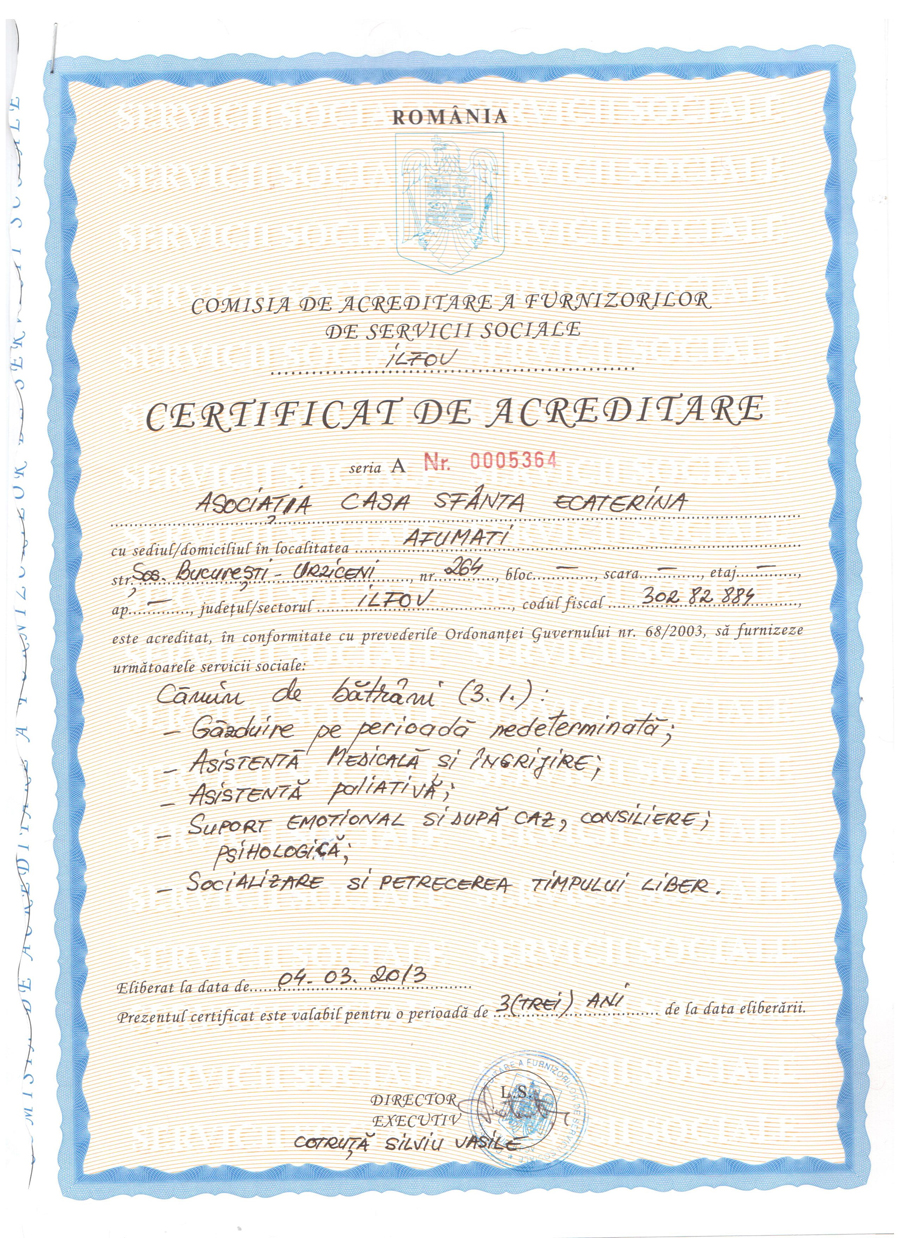 ROMÂNIA
COMISIA DE ACREDITARE A FURNIZORILOR
DE SERVICII SOCIALE
ILFOV
CERTIFICAT DE ACREDITARE
seria A Nr. 0005364
ASOCIAȚIA CASA SFÂNTA ECATERINA
cu sediul/domiciliul în localitatea AFUMATI
str. Șos. București - URZICENI, nr. 264, bloc —, scara —, etaj —,
ap. —, județul/sectorul ILFOV, codul fiscal 30282884,
este acreditat, în conformitate cu prevederile Ordonanței Guvernului nr. 68/2003, să furnizeze
următoarele servicii sociale:
Cămin de bătrâni (3.1.):
– Găzduire pe perioadă nedeterminată;
– ASISTENTĂ MEDICALĂ SI ÎNGRIJIRE;
– ASISTENTĂ PALIATIVĂ;
– SUPORT EMOTIONAL SI DUPĂ CAZ, CONSILIERE;
PSIHOLOGICĂ;
– SOCIALIZARE SI PETRECEREA TIMPULUI LIBER.
Eliberat la data de 04. 03. 2013
Prezentul certificat este valabil pentru o perioadă de 3 (TREI) ANI de la data eliberării.
L.S.
DIRECTOR
EXECUTIV
COTRUȚĂ SILVIU VASILE